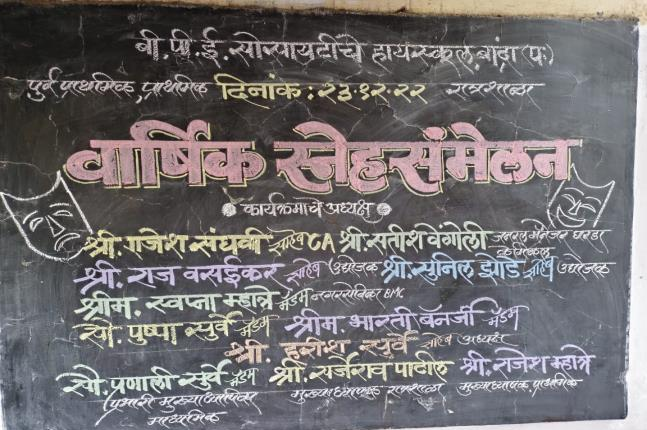 बी.पी.ई. सोसायटीचे हायस्कूल, बांद्रा (प.)
पुर्व प्राथमिक, प्राथमिक दिनांक : २३.१२.२२ रात्रशाळा
वार्षिक स्नेहसंमेलन
कार्यक्रमाचे अध्यक्ष
श्री. राजेश संघवी साहेब CA श्री. सतीश वेंगोली जनरल मॅनेजर घरडा केमिकल
श्री. राज वसईकर साहेब उद्योजक श्री. सुनिल झोडे साहेब उद्योजक
श्रीम. स्वप्ना म्हात्रे मॅडम नगरसेविका BMC
सौ. पुष्पा सुर्वे मॅडम श्रीम. भारती बनर्जी मॅडम
श्री. हरीश सुर्वे साहेब अध्यक्ष
सौ. प्रणाली सुर्वे मॅडम श्री. सर्जेराव पाटील श्री. राजेश म्हात्रे
प्रभारी मुख्याध्यापिका मुख्याध्यापक रात्रशाळा मुख्याध्यापक प्राथमिक
माध्यमिक